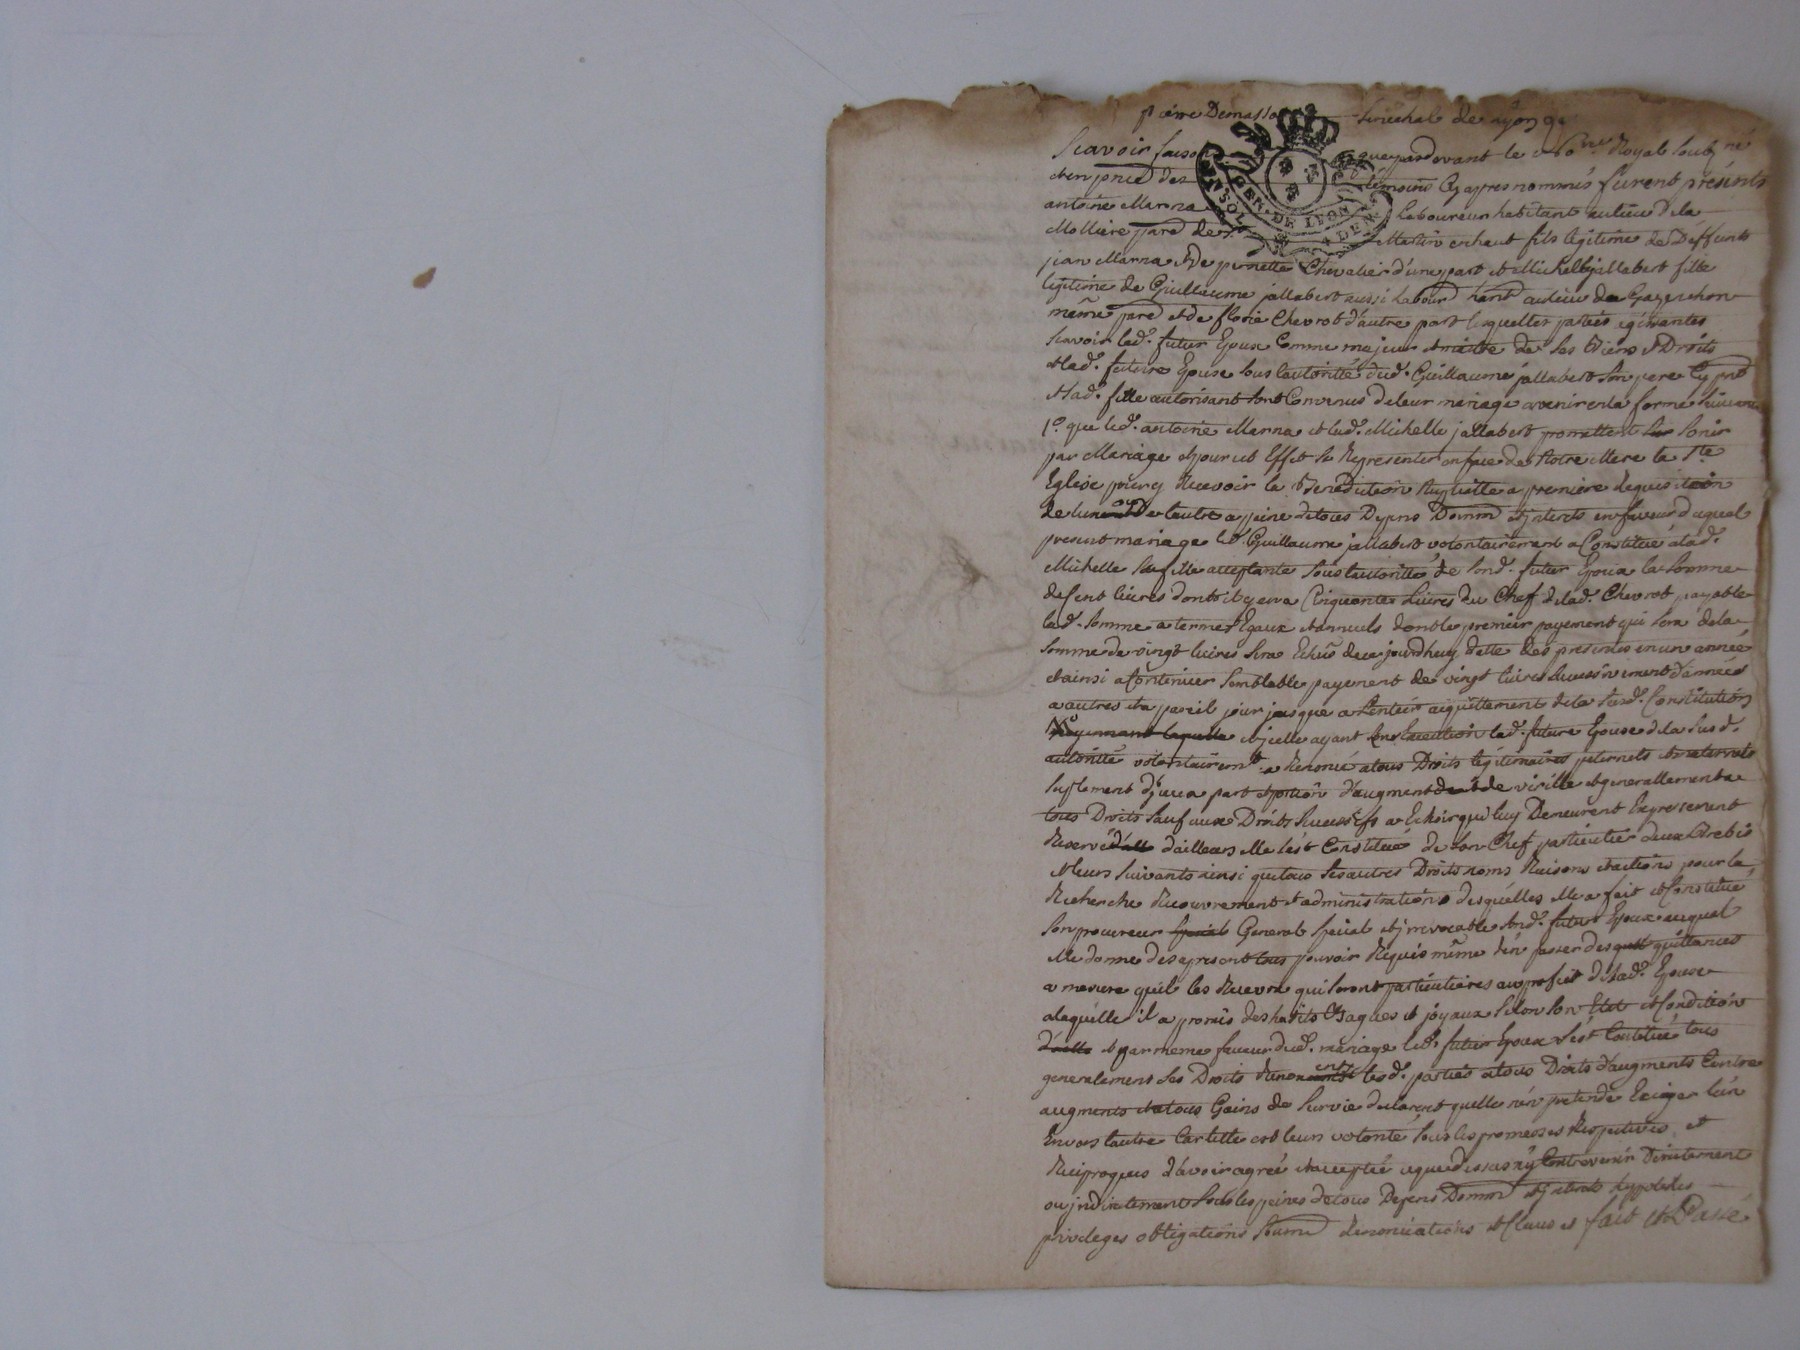 pierre Demasso Sénéchal de Lyon
Scavoir faisons que pardevant le No.re Royal soubz.né
et en pnce des témoins Cy apres nommés furent présents
antoine Marna Laboureur habitant au lieu de la
Mollière par. de St Martin en haut fils légitime de Deffunts
jean Marna et de pernette Chevalier d'une part et Michelle jallabert fille
légitime de Guillaume jallabert aussi Labour. hant au lieu de
même par. et de florie Chevrot d'autre part lesquelles parties
Scavoir led. futur Epoux Comme majeur et maître de ses Biens & Droits
et lad. future Epouse sous l'autorité dud. Guillaume jallabert son pere Cy pnt
et lad. fille autorisant sont Convenus de leur mariage avenir en la forme suivante
1.° que led. antoine Marna et lad. Michelle jallabert promettent s'unir
par Mariage et pour cet Effet se Représenter en face de Notre Mere la Ste
Eglise pour y Recevoir la Bénédiction Nuptialle a première Requisition
de l'un ou De l'autre a peine de tous Depens Domm. et jnterets en faveur duquel
present mariage led. Guillaume jallabert volontairement a Constitué a lad.
Michelle sa fille acceptante sous l'autorité de sond. futur Epoux la somme
de Cent livres dont il y en a Cinquante Livres du Chef de lad. Chevrot payable
lad. somme a termes Egaux et annuels dont le premier payement qui sera de la
somme de vingt livres sera Echu de ce jourd'huy datte des présentes en un année
et ainsi a Continuer semblable payement de vingt livres successivement d'années
a autres et a pareil jour jusque a l'entier aiquittement de la susd. Constitution
Moyennant laquelle et jcelle ayant son Execution lad. future Epouse de la susd.
autorité volontairemt. a Renoncé a tous Droits légitimaires paternels et maternels
suplement d'jceux part et portion d'augment et de virille et generallement a
tous Droits sauf aux Droits Successifs a Echoir qui luy Demeurent Expressement
Reservé d'ailleurs elle s'est Constitué de son Chef particulier deux Brebis
et leurs suivants ainsi que tous ses autres Droits noms Raisons et actions pour la
Recherche Recouvrement & administration desquelles elle a fait et Constitué
son procureur Special General Spécial et jrrevocable sond. futur Epoux auquel
elle donne des apresent tous pouvoir Requis même d'en passer des quittances
a mesure qu'il les Recevra qui seront particulières au profit de lad. Epouse
a laquelle il a promis des habits Bagues et joyaux selon son Etat et Condition
d'icelle et par meme faveur dud. mariage led. futur Epoux s'est Constitué tous
generalement ses Droits lesd. parties a tous Droits d'augments Contre
augments et a tous Gains de survie declarent quelle n'en pretende Exiger l'un
Envers l'autre Car telle est leurs volonté sous les promesses Respectives et
Reciproques d'avoir agréé et accepté ce que dessus n'y Contrevenir Directement
ou jndirectement sous les peines de tous Depens Domm. et jnterets
privileges obligations soum. Renonciations et Clauses fait et Passé
GEN. DE LYON